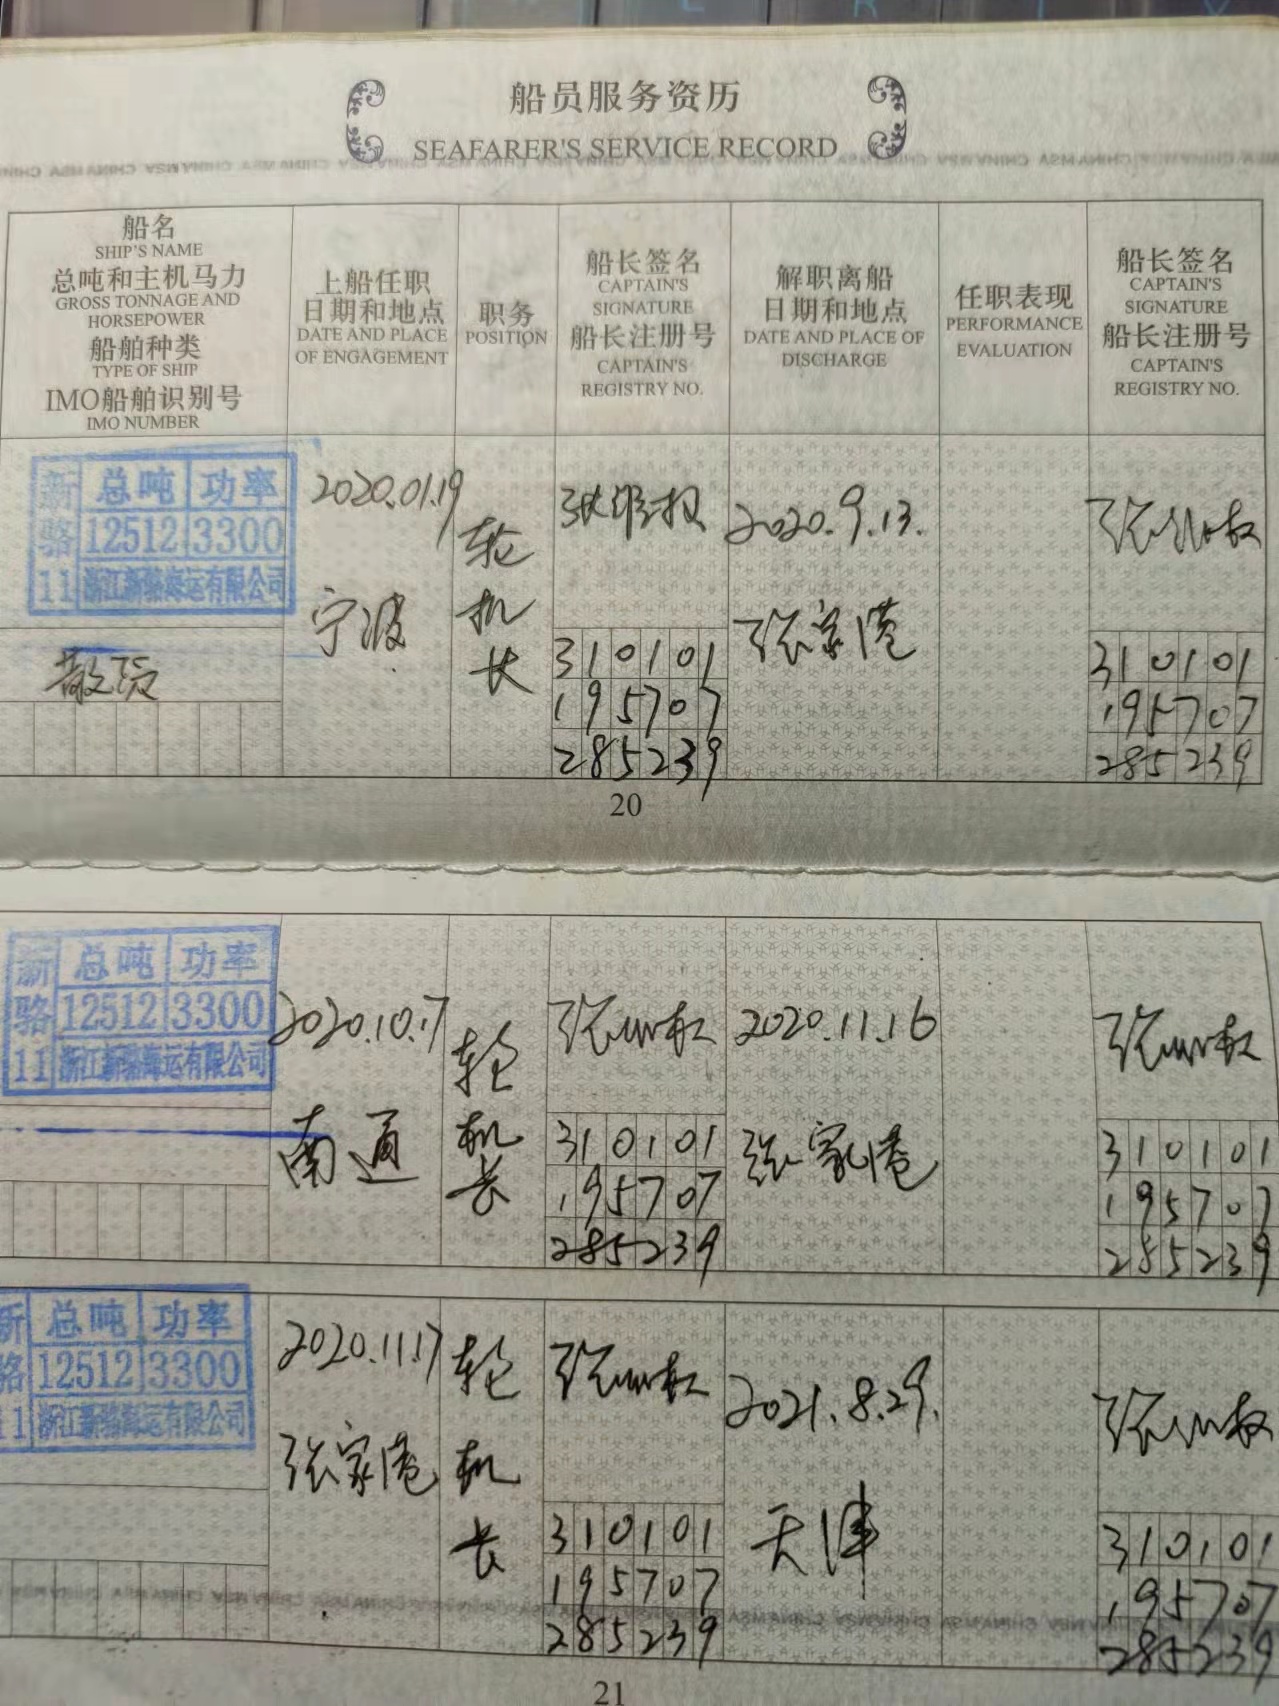 船员服务资历
SEAFARER'S SERVICE RECORD
船名
SHIP'S NAME
总吨和主机马力
GROSS TONNAGE AND
HORSEPOWER
船舶种类
TYPE OF SHIP
IMO船舶识别号
IMO NUMBER
上船任职
日期和地点
DATE AND PLACE
OF ENGAGEMENT
职务
POSITION
船长签名
CAPTAIN'S
SIGNATURE
船长注册号
CAPTAIN'S
REGISTRY NO.
解职离船
日期和地点
DATE AND PLACE OF
DISCHARGE
任职表现
PERFORMANCE
EVALUATION
船长签名
CAPTAIN'S
SIGNATURE
船长注册号
CAPTAIN'S
REGISTRY NO.
新骆11
总吨 功率
12512 3300
浙江新骆海运有限公司
散货
2020.01.19
宁波
轮机长
310101
195707
285239
2020.9.13.
张家港
310101
195707
285239
20
新骆11
总吨 功率
12512 3300
浙江新骆海运有限公司
2020.10.17
南通
轮机长
310101
195707
285239
2020.11.16
张家港
310101
195707
285239
新骆11
总吨 功率
12512 3300
浙江新骆海运有限公司
2020.11.17
张家港
轮机长
310101
195707
285239
2021.8.29.
天津
310101
195707
285239
21